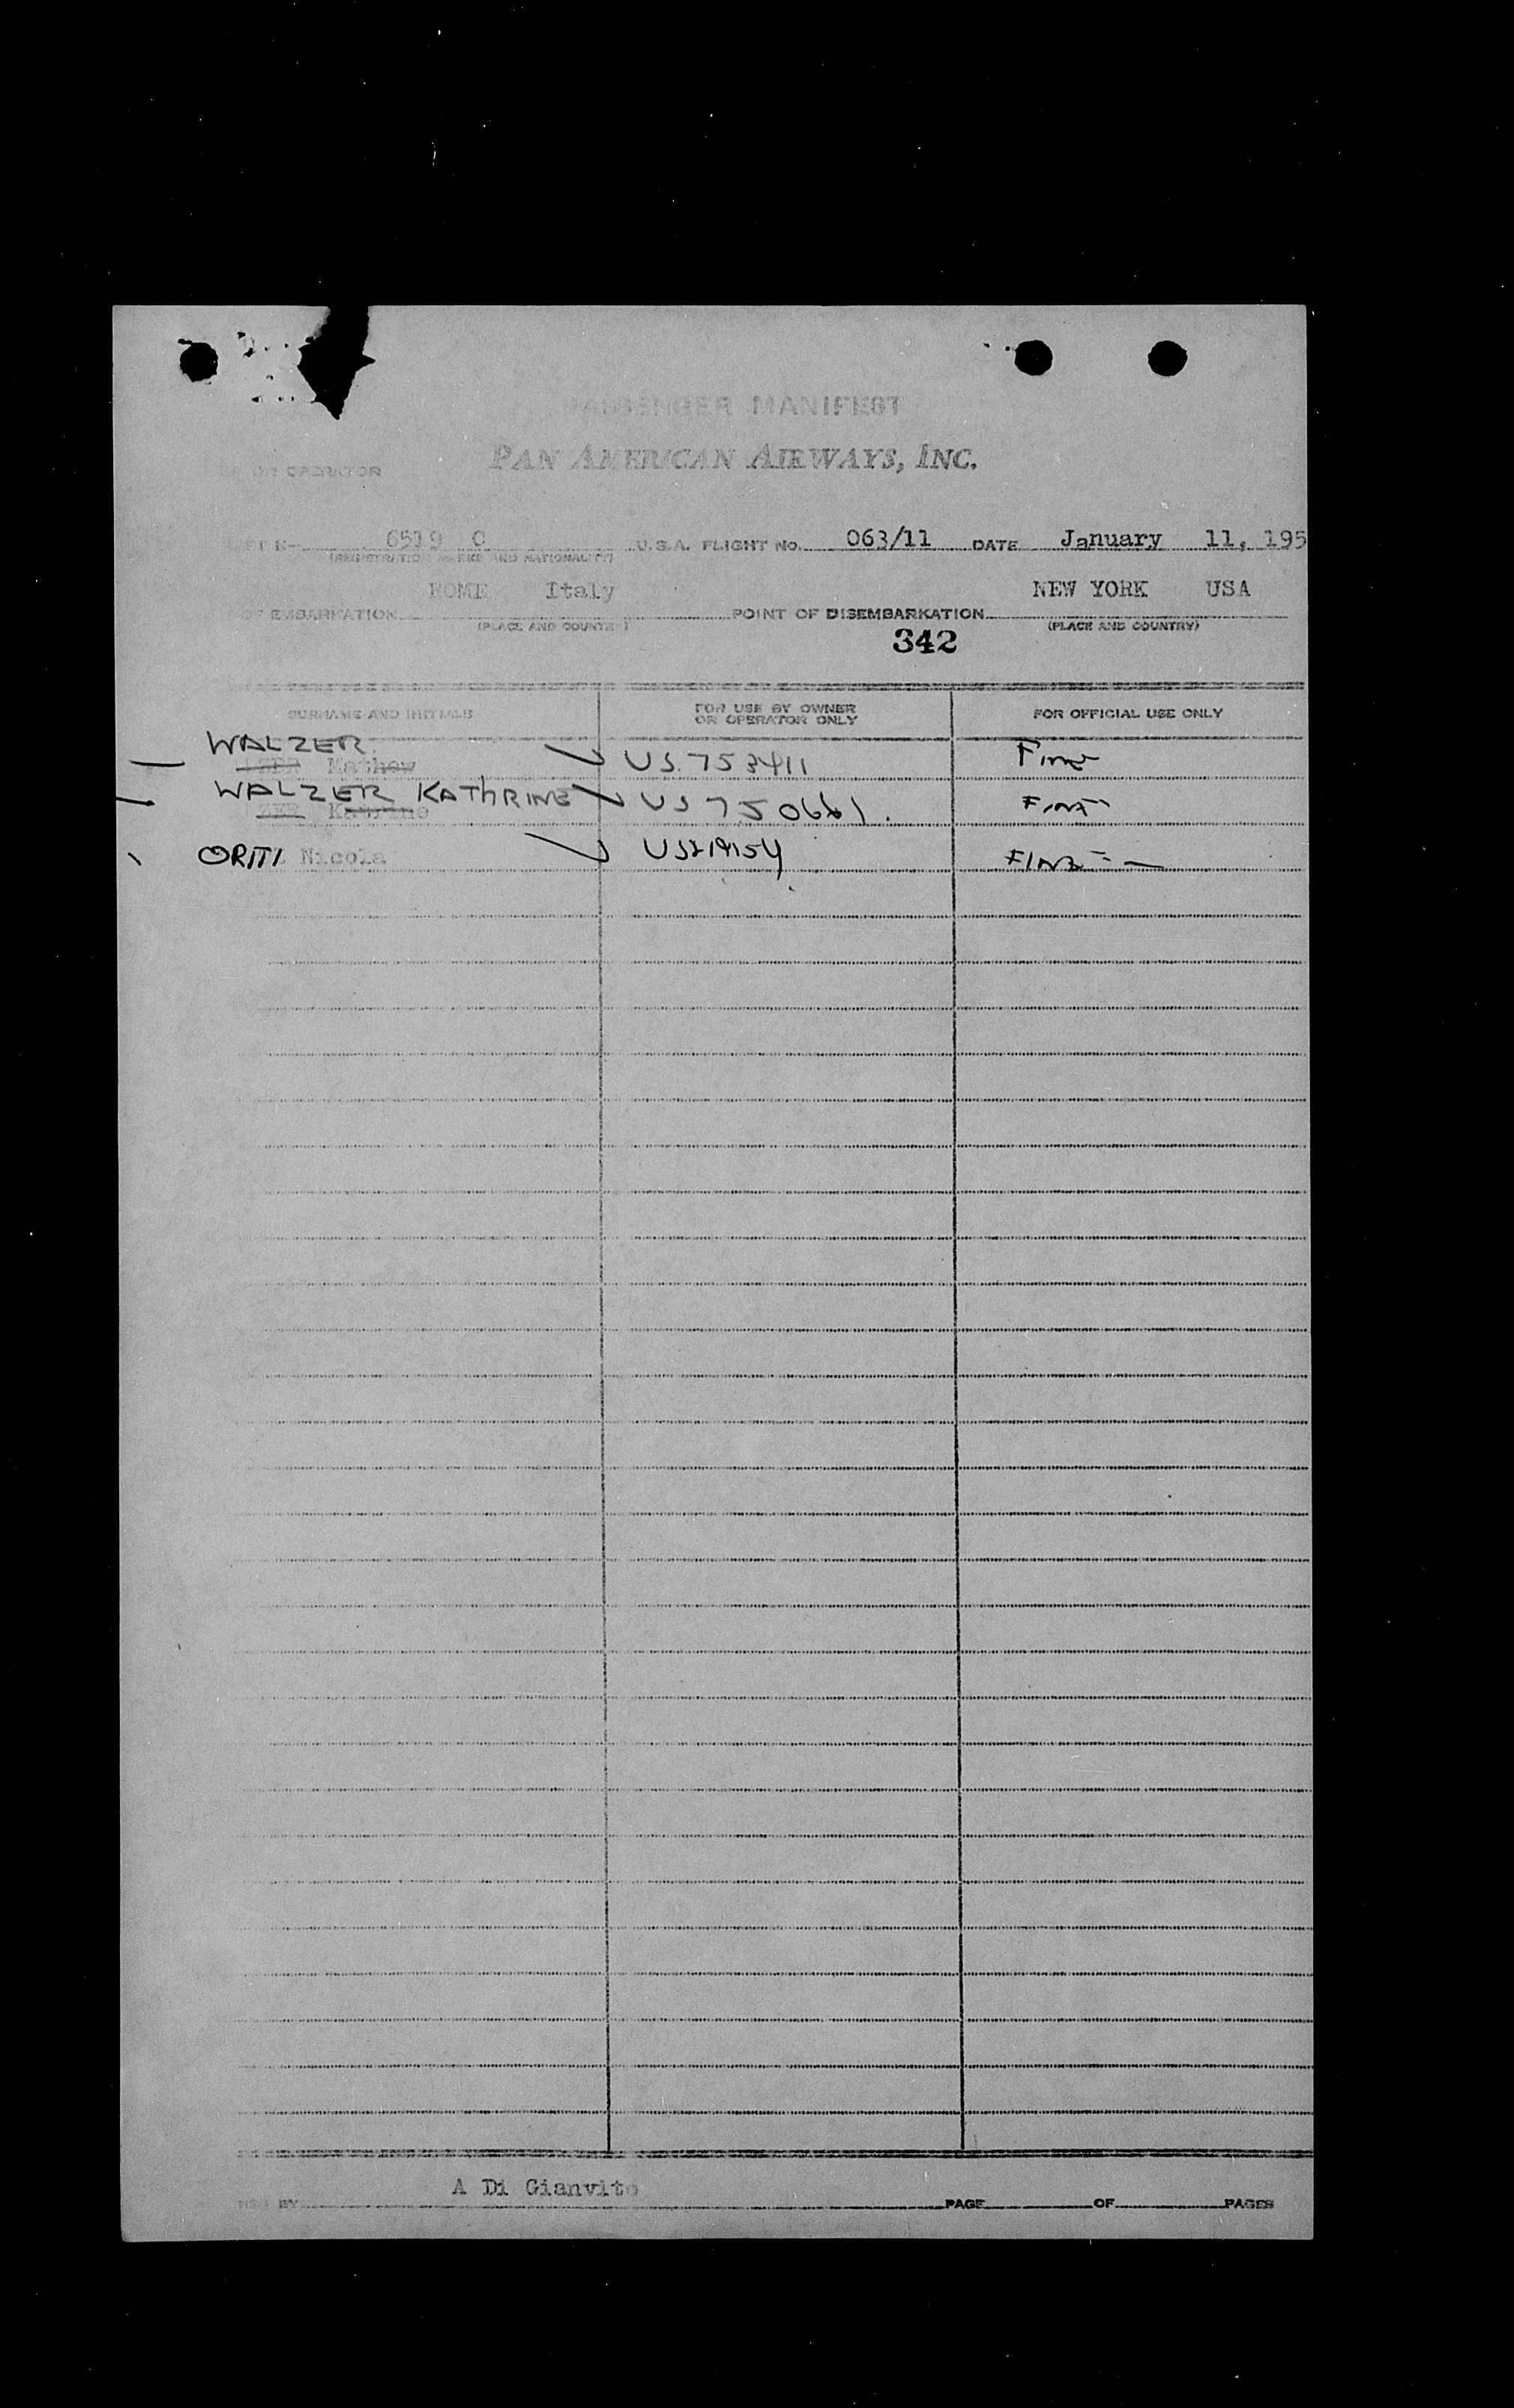 PASSENGER MANIFEST
PAN AMERICAN AIRWAYS, INC.
OR OPERATOR
6519 C U.S.A. FLIGHT NO. 063/11 DATE January 11, 195
(REGISTRATION MARKS AND NATIONALITY)
ROME Italy NEW YORK USA
OF EMBARKATION POINT OF DISEMBARKATION
(PLACE AND COUNTRY) (PLACE AND COUNTRY)
342
SURNAME AND INITIALS FOR USE BY OWNER OR OPERATOR ONLY FOR OFFICIAL USE ONLY
WALZER
Mathew US 753411
WALZER KATHRINE US
Katrine
ORITI Nicola
A Di Gianvito
BY PAGE OF PAGES